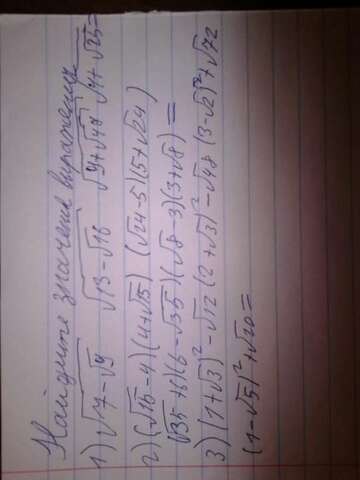 Найдите значение выражения
1) √(7-√9) √(13-√16) √(9+√49) √(4+√25)=
2) (√15-4)(4+√15) (√24-5)(5+√24)
(√35+6)(6-√35)(√8-3)(3+√8)=
3) (1+√3)²-√12 (2+√3)²-√48 (3-√2)²+√72
(1-√5)²+√20=